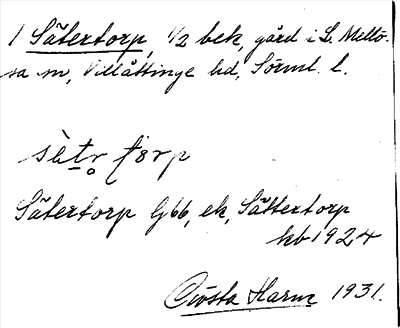 1 Sätertorp, 1/2 bek, gård i L. Mellö-
sa sn, Villåttinge hd, Sörml. l.
sätr tɵrp
Sätertorp Gbb, ek, Sättertorp
kb 1924
Gösta Harm 1931.